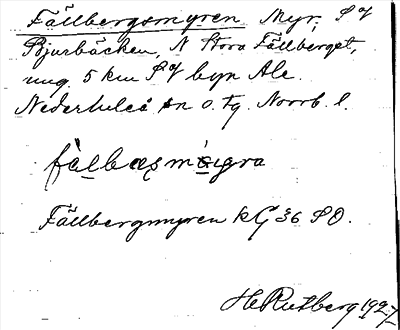 Fällbergsmyren Myr, S of
Bjurbäcken, N Stora Fällberget,
ung. 5 km S of byn Ale.
Nederluleå sn o. tg. Norrb. l.
Fällbergsmyren kG 36 SO.
H Rutberg 1927